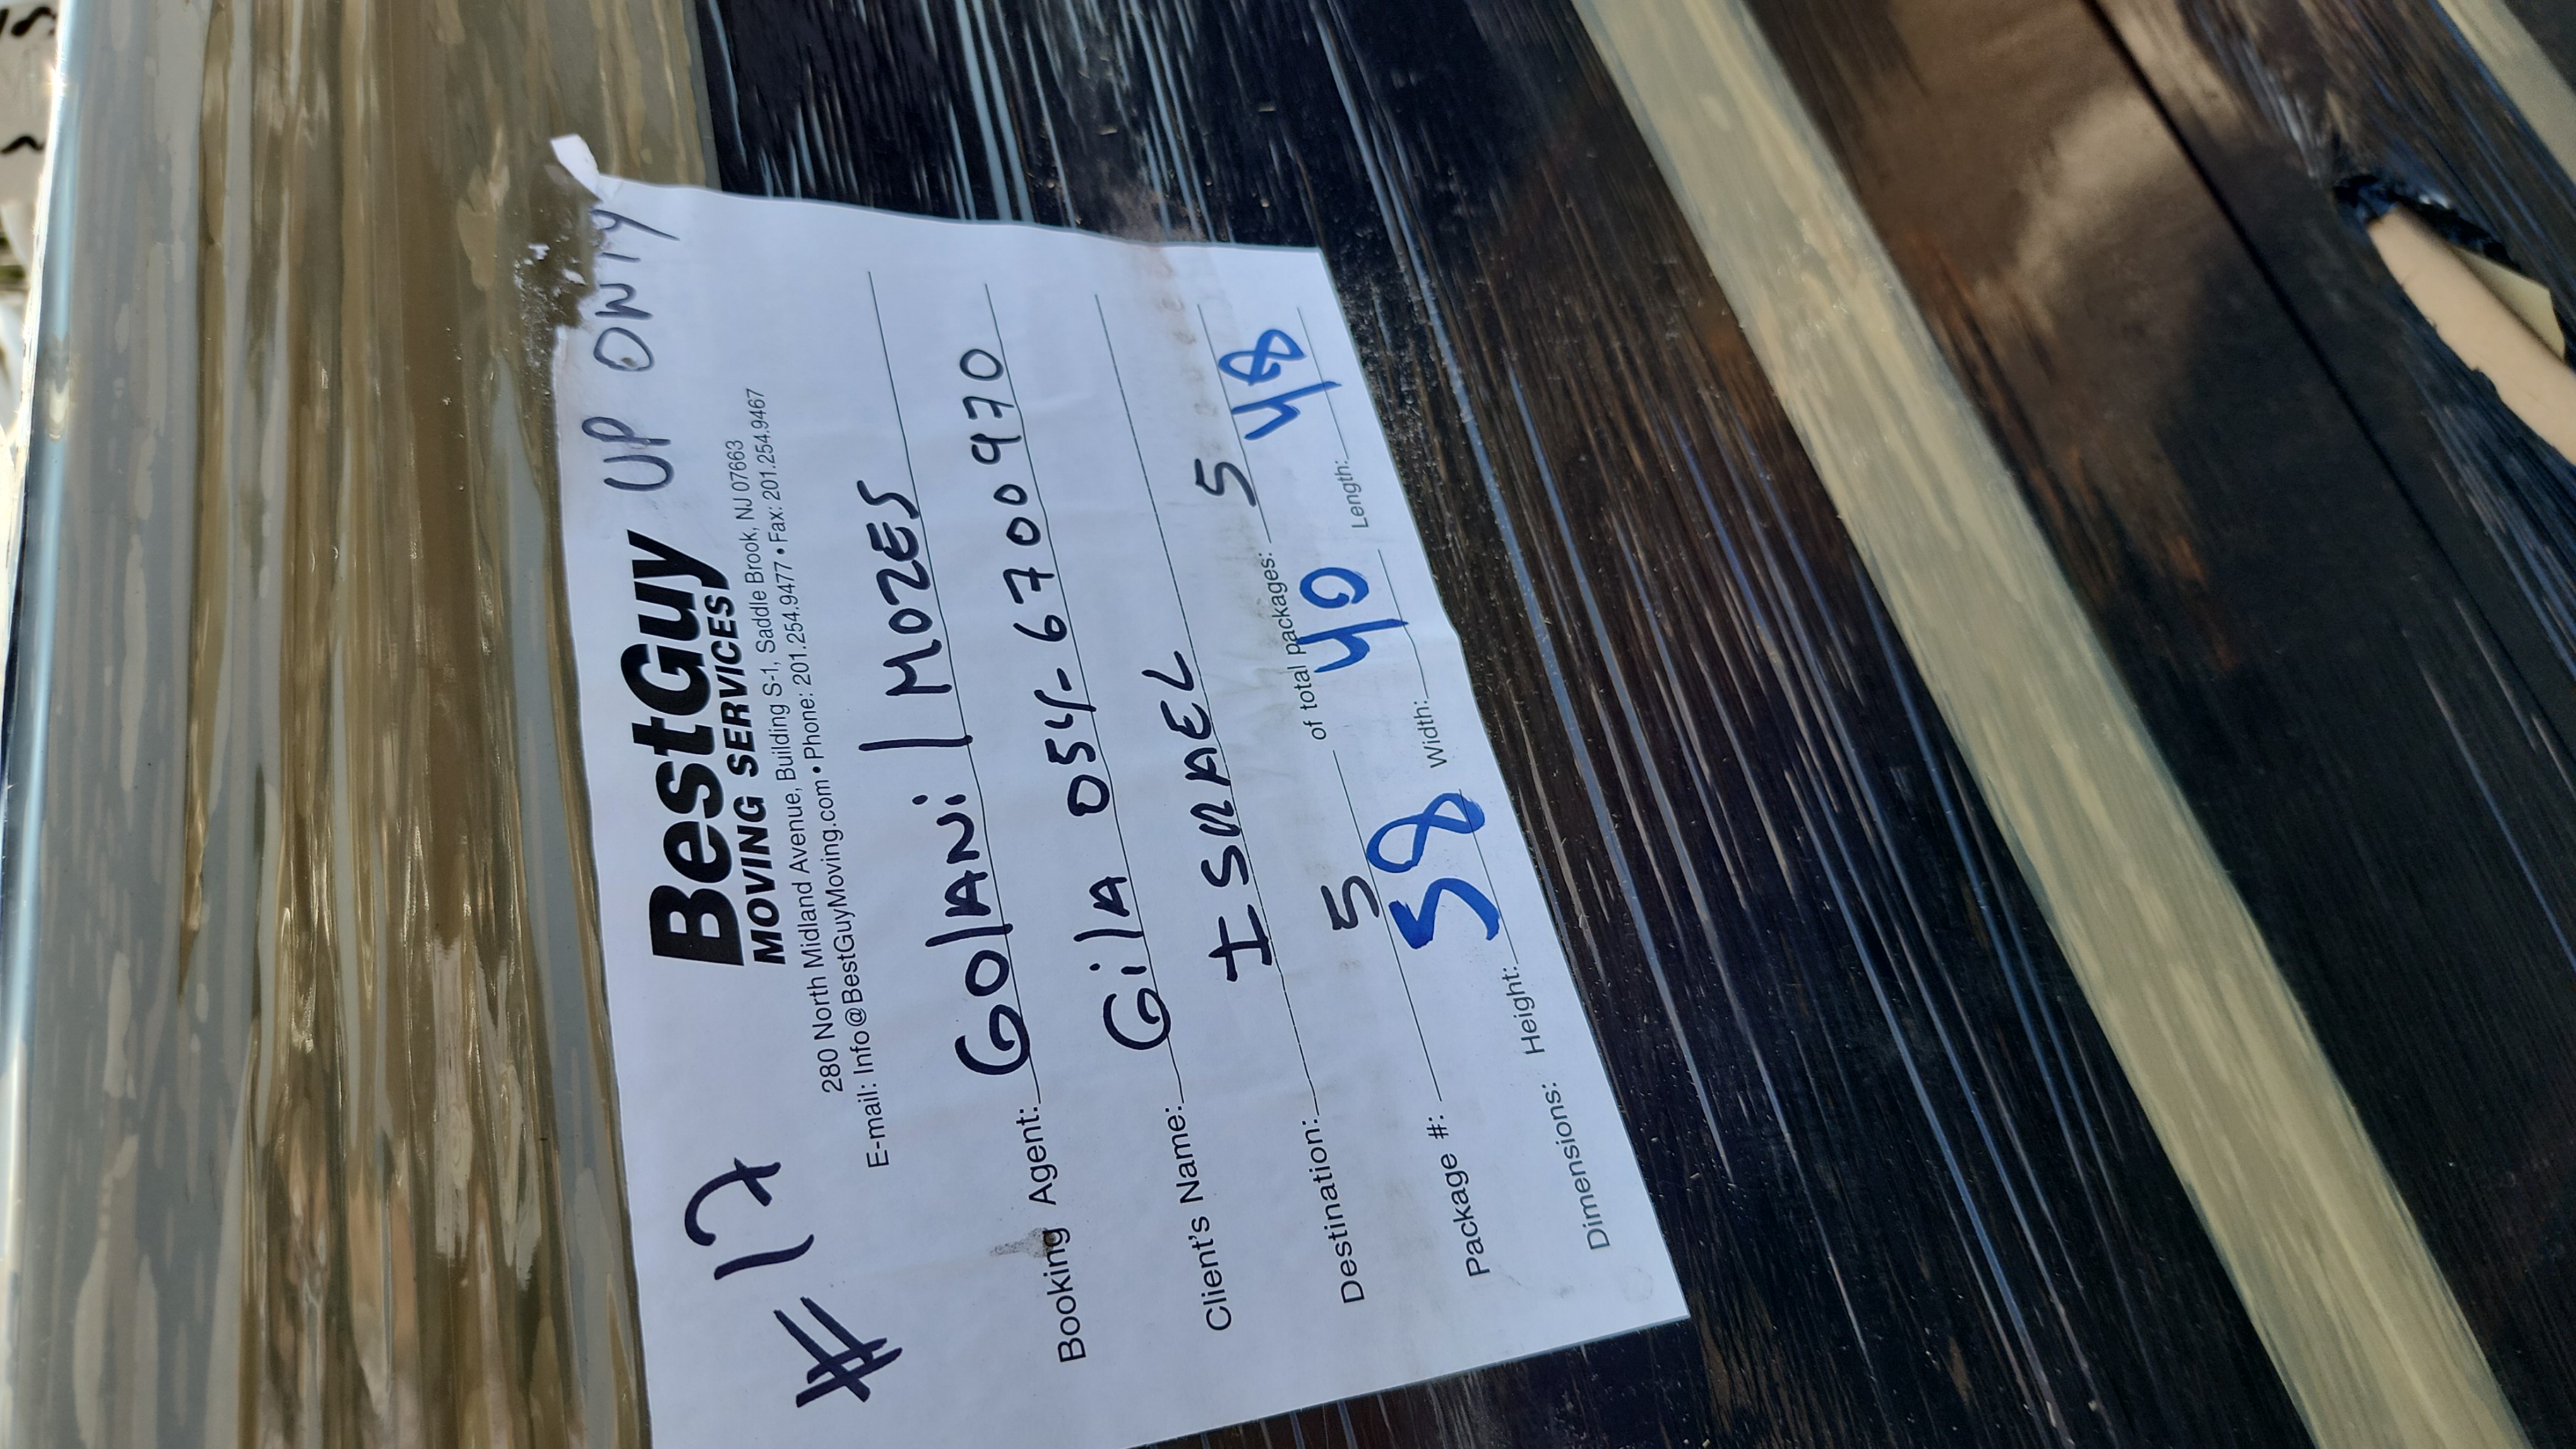 UP ONLY
#17
BestGuy
MOVING SERVICES
280 North Midland Avenue, Building S-1, Saddle Brook, NJ 07663
E-mail: Info@BestGuyMoving.com • Phone: 201.254.9477 • Fax: 201.254.9467
Booking Agent: GOlANi / MOZES
Client's Name: GilA 054-6700970
Destination: ISRAEL
Package #: 5 of total packages: 5
Dimensions: Height: 58 Width: 40 Length: 48